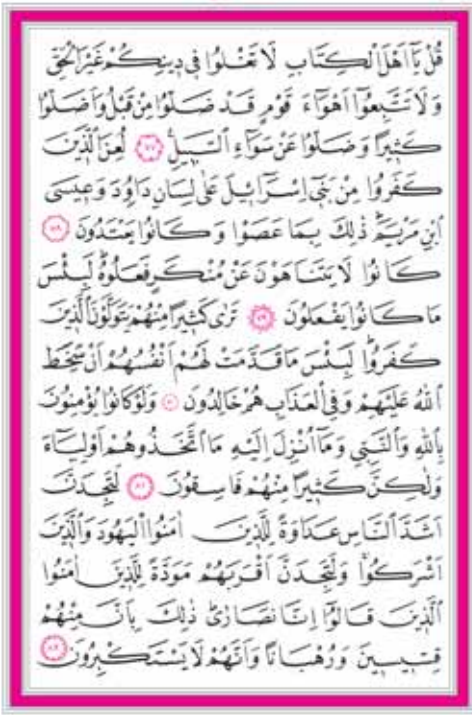 قُلْ يَٓا اَهْلَ الْكِتَابِ لَا تَغْلُوا ف۪ي د۪ينِكُمْ غَيْرَ الْحَقِّ
وَلَا تَتَّبِعُٓوا اَهْوَٓاءَ قَوْمٍ قَدْ ضَلُّوا مِنْ قَبْلُ وَاَضَلُّوا
كَث۪يرًا وَضَلُّوا عَنْ سَوَٓاءِ السَّب۪يلِ۟ ﴿٧٧﴾ لُعِنَ الَّذ۪ينَ
كَفَرُوا مِنْ بَن۪ٓي اِسْرَٓائ۪لَ عَلٰى لِسَانِ دَاوُ۫دَ وَع۪يسَى
ابْنِ مَرْيَمَۜ ذٰلِكَ بِمَا عَصَوْا وَكَانُوا يَعْتَدُونَ ﴿٧٨﴾
كَانُوا لَا يَتَنَاهَوْنَ عَنْ مُنْكَرٍ فَعَلُوهُۜ لَبِئْسَ
مَا كَانُوا يَفْعَلُونَ ﴿٧٩﴾ تَرٰى كَث۪يرًا مِنْهُمْ يَتَوَلَّوْنَ الَّذ۪ينَ
كَفَرُواۜ لَبِئْسَ مَا قَدَّمَتْ لَهُمْ اَنْفُسُهُمْ اَنْ سَخِطَ
اللّٰهُ عَلَيْهِمْ وَفِي الْعَذَابِ هُمْ خَالِدُونَ ﴿٨٠﴾ وَلَوْ كَانُوا يُؤْمِنُونَ
بِاللّٰهِ وَالنَّبِيِّ وَمَٓا اُنْزِلَ اِلَيْهِ مَا اتَّخَذُوهُمْ اَوْلِيَٓاءَ
وَلٰكِنَّ كَث۪يرًا مِنْهُمْ فَاسِقُونَ ﴿٨١﴾ لَتَجِدَنَّ
اَشَدَّ النَّاسِ عَدَاوَةً لِلَّذ۪ينَ اٰمَنُوا الْيَهُودَ وَالَّذ۪ينَ
اَشْرَكُواۚ وَلَتَجِدَنَّ اَقْرَبَهُمْ مَوَدَّةً لِلَّذ۪ينَ اٰمَنُوا
الَّذ۪ينَ قَالُٓوا اِنَّا نَصَارٰىۜ ذٰلِكَ بِاَنَّ مِنْهُمْ
قِسّ۪يس۪ينَ وَرُهْبَانًا وَاَنَّهُمْ لَا يَسْتَكْبِرُونَ ﴿٨٢﴾